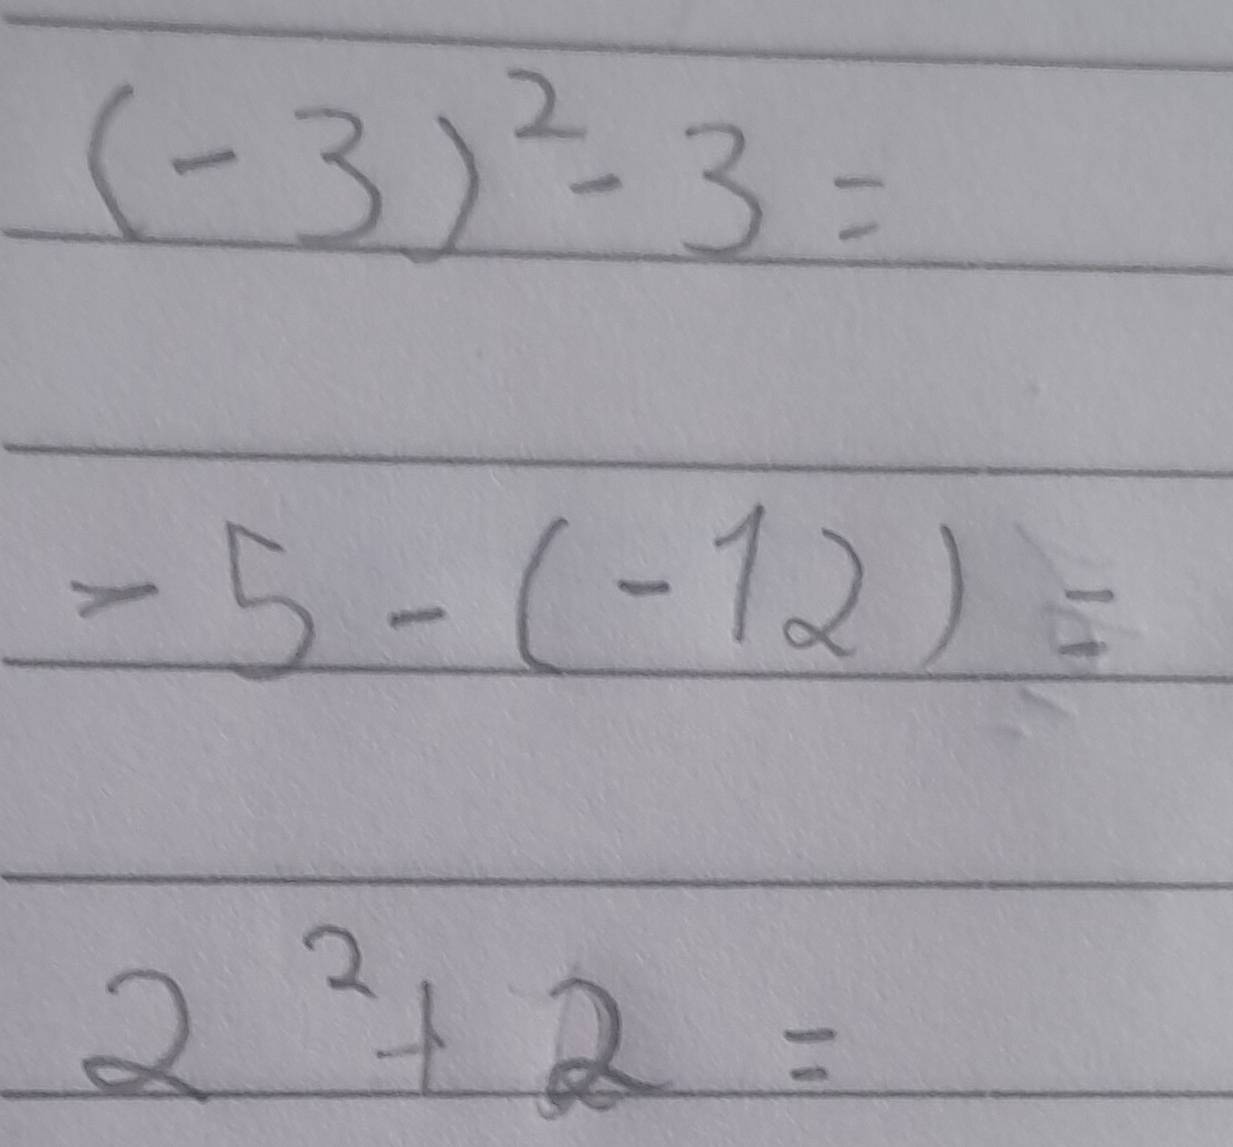 (-3)²-3=
-5-(-12)=
2²+2=